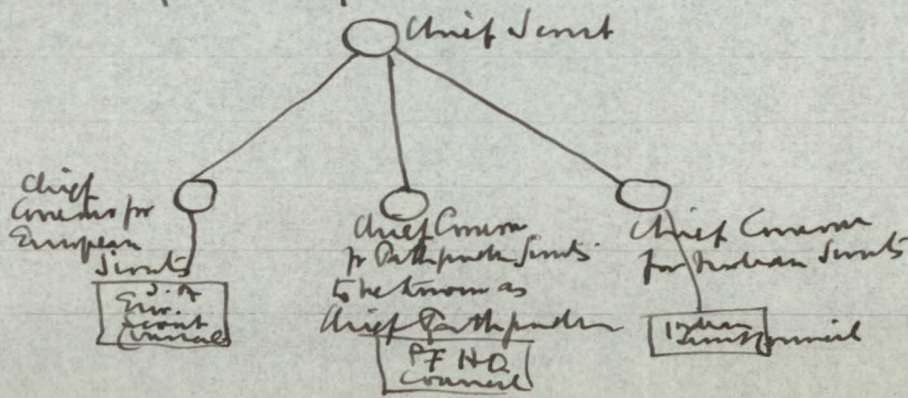 Chief Scout
Chief
Commr for
European
Scouts
S. A
Eur.
Scout
Council
Chief Commr
for Pathfinder Scouts
to be known as
Chief Pathfinder
PF HQ
Council
Chief Commr
for Indian Scouts
Indian
Scout Council